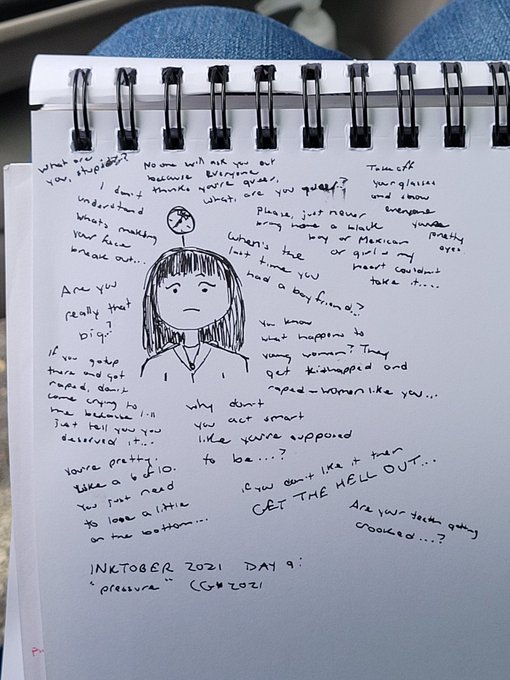 what are
you, stupid?
No one will ask you out
because everyone
thinks you're queer,
what, are you queer..?
Take off
your glasses
and show
everyone
your
pretty
eyes
I don't
understand
what's making
your face
break out...
Please, just never
bring home a black
boy or Mexican
or girl - my
heart couldn't
take it....
When's the
last time you
had a boyfriend..?
Are you
really that
big..?
You know
what happens to
young women? They
get kidnapped and
raped - women like you...
If you go up
there and get
raped, don't
come crying to
me because I'll
just tell you you
deserved it...
why don't
you act smart
like you're supposed
to be...?
You're pretty.
Like a 6 of 10.
You just need
to lose a little
on the bottom...
if you don't like it then
GET THE HELL OUT...
Are your teeth getting
crooked...?
INKTOBER 2021 DAY 9:
"pressure" CG 2021